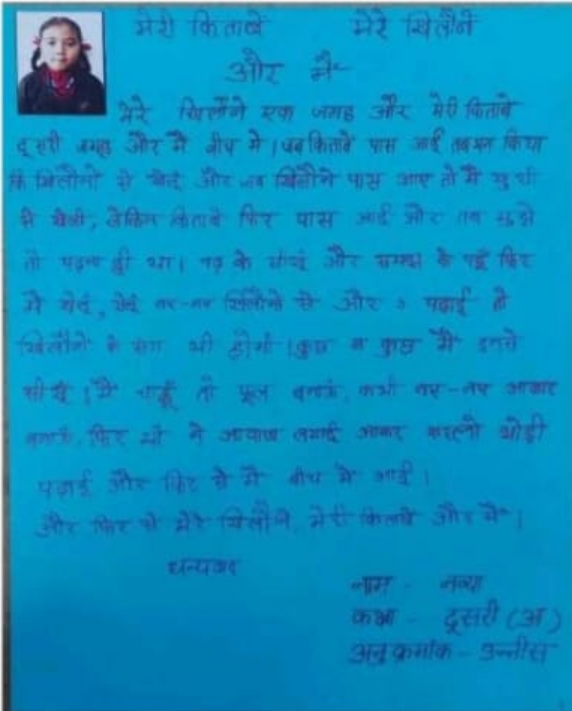 मेरी किताबें मेरे खिलौने
और मैं
मेरे खिलौने एक जगह और मेरी किताबे
दूसरी जगह और मैं बीच मे । जब किताबे पास आई तब मन किया
कि खिलौनों से खेलूं और जब खिलौने पास आए तो मैं खुशी
से खेली, लेकिन किताबे फिर पास आई और तब मुझे
तो पढ़ना ही था। पढ़ के सीखूं और समझ के पढूँ फिर
मैं खेलूं, खेलूं नए-नए खिलौनों से और पढ़ाई तो
खिलौनों के संग भी होगी । कुछ न कुछ मैं इनसे
सीखूं । मैं चाहूँ तो फूल बनाऊं, कभी नए-नए आकार
बनाऊं, फिर माँ ने आवाज लगाई आकर करलो थोड़ी
पढ़ाई और फिर से मैं बीच मे आई ।
और फिर से मेरे खिलौने, मेरी किताबे और मैं ।
धन्यवाद
नाम - नव्या
कक्षा - दूसरी (अ)
अनुक्रमांक - उन्तीस